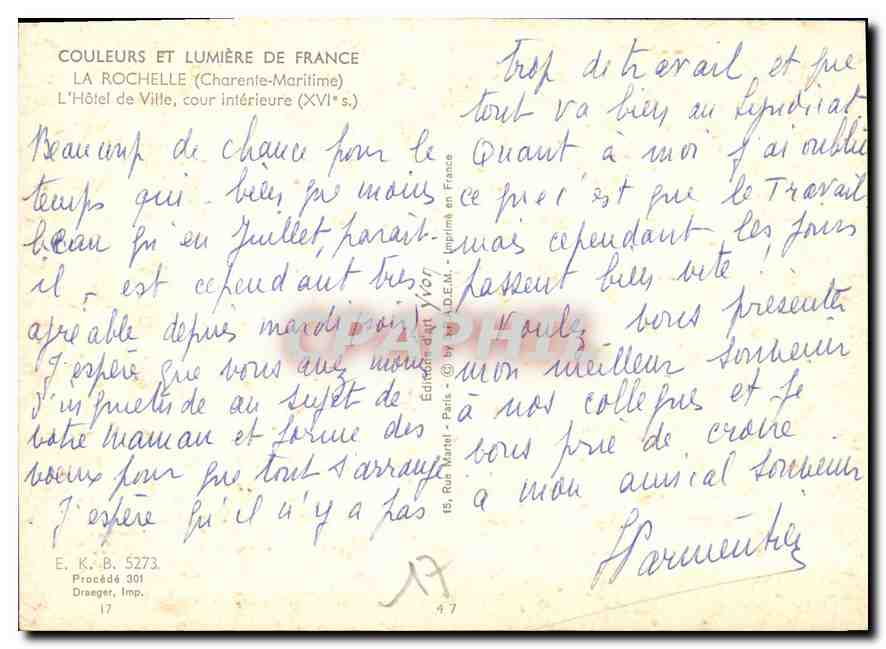 COULEURS ET LUMIÈRE DE FRANCE
LA ROCHELLE (Charente-Maritime)
L'Hôtel de Ville, cour intérieure (XVIe s.)
Beaucoup de chance pour le
temps qui - bien que moins
beau qu'en Juillet, parait-
il - est cependant très
agréable depuis mardi soir.
J'espère que vous avez moins
d'inquietude au sujet de
votre maman et forme des
voeux pour que tout s'arrange
. J'espère qu'il n'y a pas
E. K. B. 5273
Procédé 301
Draeger, Imp.
17
17
47
15, Rue Martel - Paris - © by A.D.E.M. - Imprimé en France
Éditions d'art Yvon
CPAPHIL
trop de travail et que
tout va bien au Syndicat
Quant à moi j'ai oublié
ce que c'est que le Travail
mais cependant les jours
passent bien vite !
Voulez vous présenter
mon meilleur souvenir
à nos collegues et je
vous prie de croire
à mon amical souvenir
Parmentier